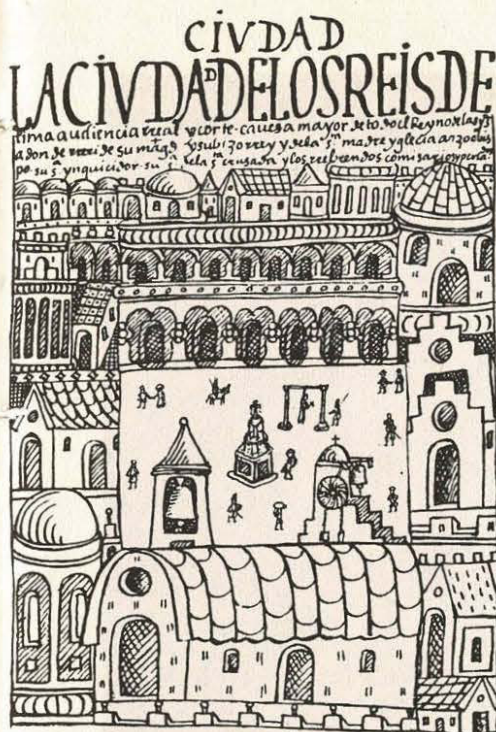 CIVDAD
LACIVDADDELOSREISDE
lima audiencia rreal y corte cauesa mayor de todo el Reyno de las yn
a don de rrecide su magd y su bizorrey y dela sta madre yglecia arzobis
po su sa ynquicidor su sa dela sta crusada y los rreberendos comisarios